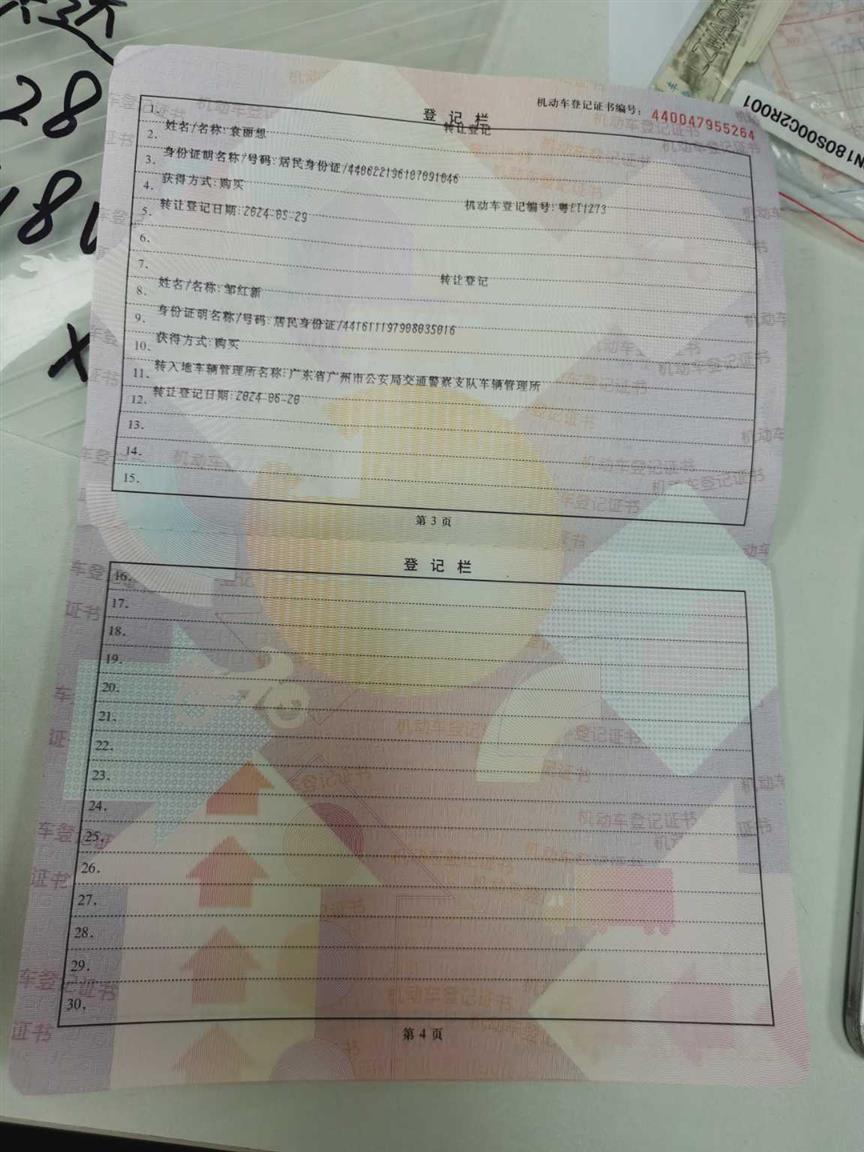 28
181
x
N180S00C2R001
机动车登记证书编号: 440047955264
登记栏
1. 转让登记
2. 姓名/名称:袁丽想
3. 身份证明名称/号码:居民身份证/440622196107091046
4. 获得方式:购买
5. 转让登记日期:2024-05-29 机动车登记编号:粤E11273
6.
7. 转让登记
8. 姓名/名称:邹红新
9. 身份证明名称/号码:居民身份证/441611197908035016
10. 获得方式:购买
11. 转入地车辆管理所名称:广东省广州市公安局交通警察支队车辆管理所
12. 转让登记日期:2024-06-20
13.
14.
15.
第 3 页
登记栏
16.
17.
18.
19.
20.
21.
22.
23.
24.
25.
26.
27.
28.
29.
30.
第 4 页